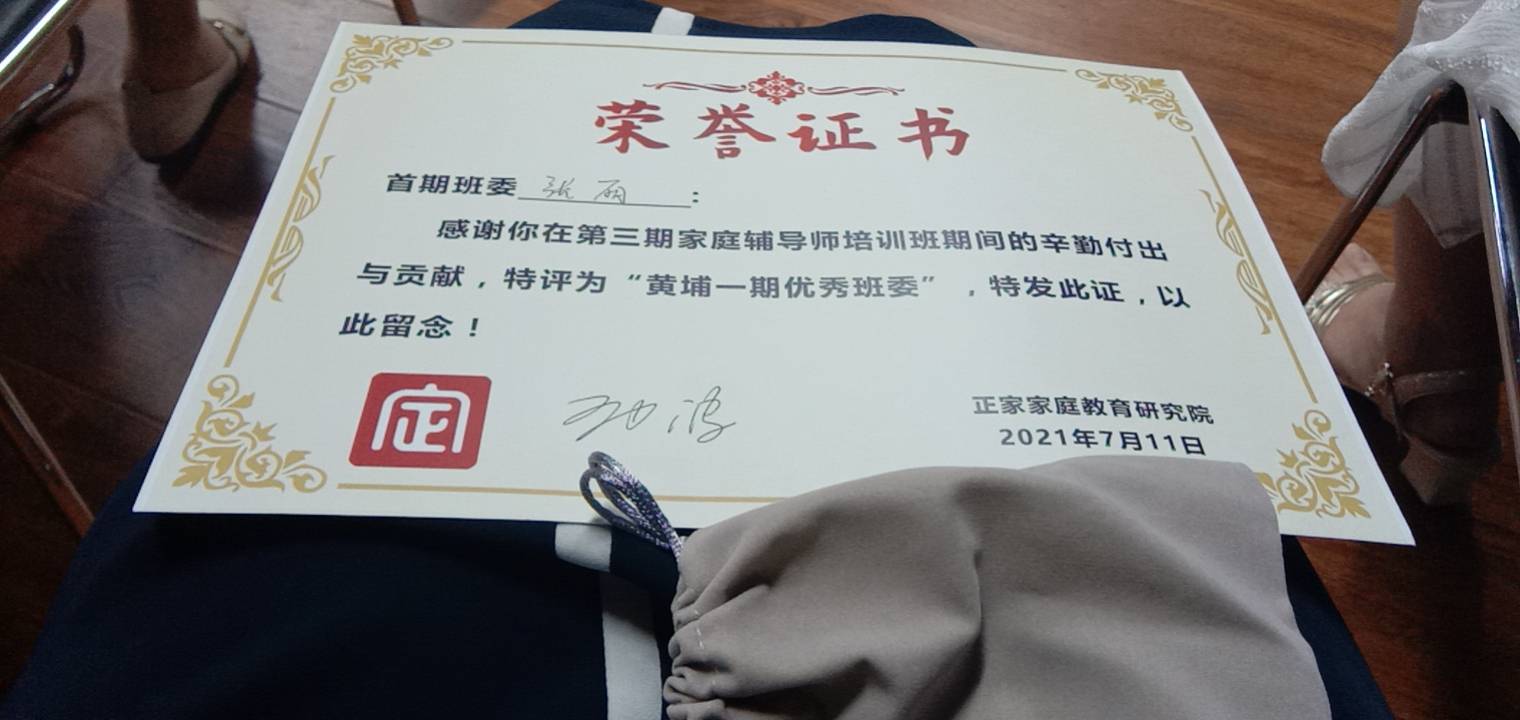 荣誉证书
首期班委 张丽 :
感谢你在第三期家庭辅导师培训班期间的辛勤付出
与贡献，特评为“黄埔一期优秀班委”，特发此证，以
此留念！
正家家庭教育研究院
2021年7月11日